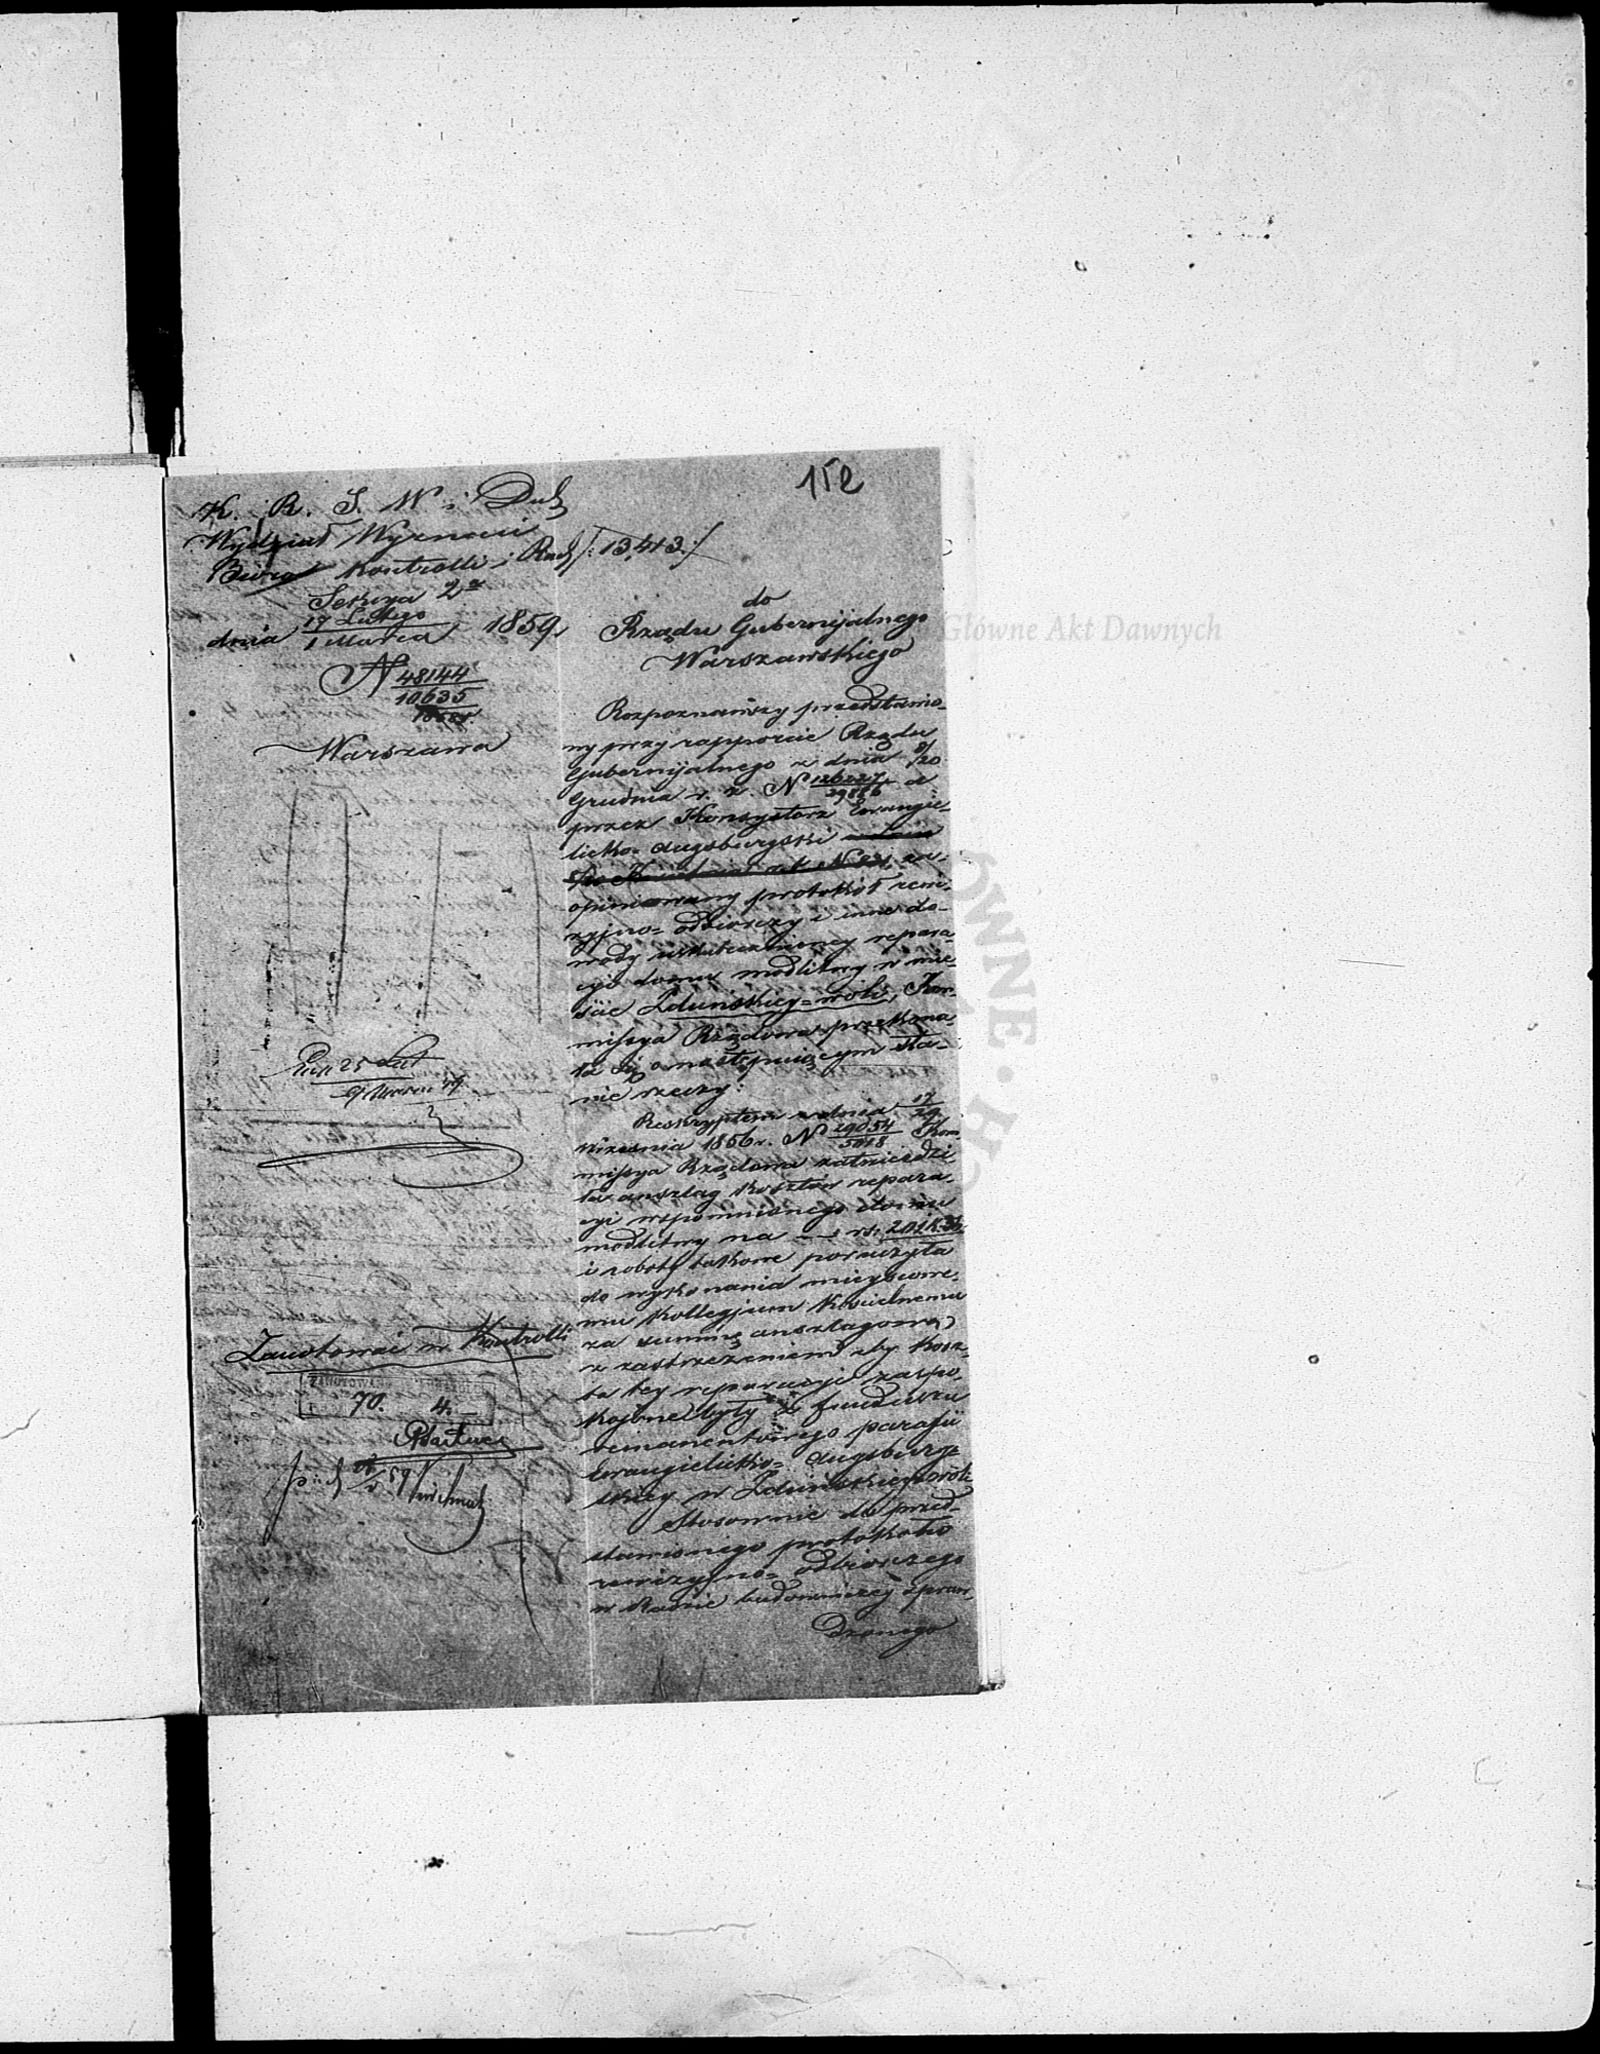 152
K. R. S. W. i Duch
Wydział Wyznań
Biuro Kontrolli i Rach /:13,413:/
Sekcya 2a
dnia 17 Lutego / 1 Marca 1859.
N 48144 / 10635
Warszawa
Zanotować w Kontrolli
70. 4.
do
Rządu Gubernijalnego
Warszawskiego
Rozpoznawszy przedstawio-
ny przy rapporcie Rządu
Gubernijalnego z dnia 8/20
Grudnia r. z. N 126227/29886 a
przez Konsystorz Ewangie-
licko-Augsburgski
za-
opiniowany protokół rewi-
zyjno-odbiorczy i inne do-
wody uskutecznioney repara-
cyi domu modlitwy w mie-
ście Zduńskiey-woli, Kom-
missya Rządowa przekona-
ła się o następuiącym sta-
nie rzeczy:
Reskryptem z dnia 17/29
Września 1856 r. N 29054/5018 Kom-
missya Rządowa zatwierdzi-
ła anszlag kosztów repara-
cyi wspomnionego domu
modlitwy na rs.
i roboty takowe poruczyła
do wykonania mieyscowe-
mu Kollegjum Kościelnemu
za summę anszlagową
z zastrzeżeniem aby kosz-
ta tey reparacyi zaspo-
kojone były z funduszu
remanentowego parafii
Ewangielicko-Augsburg-
skiey w Zduńskiey woli
Stosownie do przed-
stawionego protokołu
rewizyjno-odbiorczego
w Radzie budowniczey spraw-
dzonego
Główne Akt Dawnych